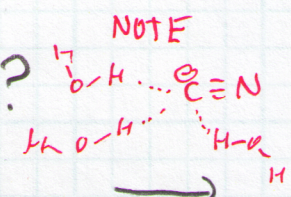 NOTE
?
H
O-H ..... ⊖C≡N
H O-H ..... H-O
H